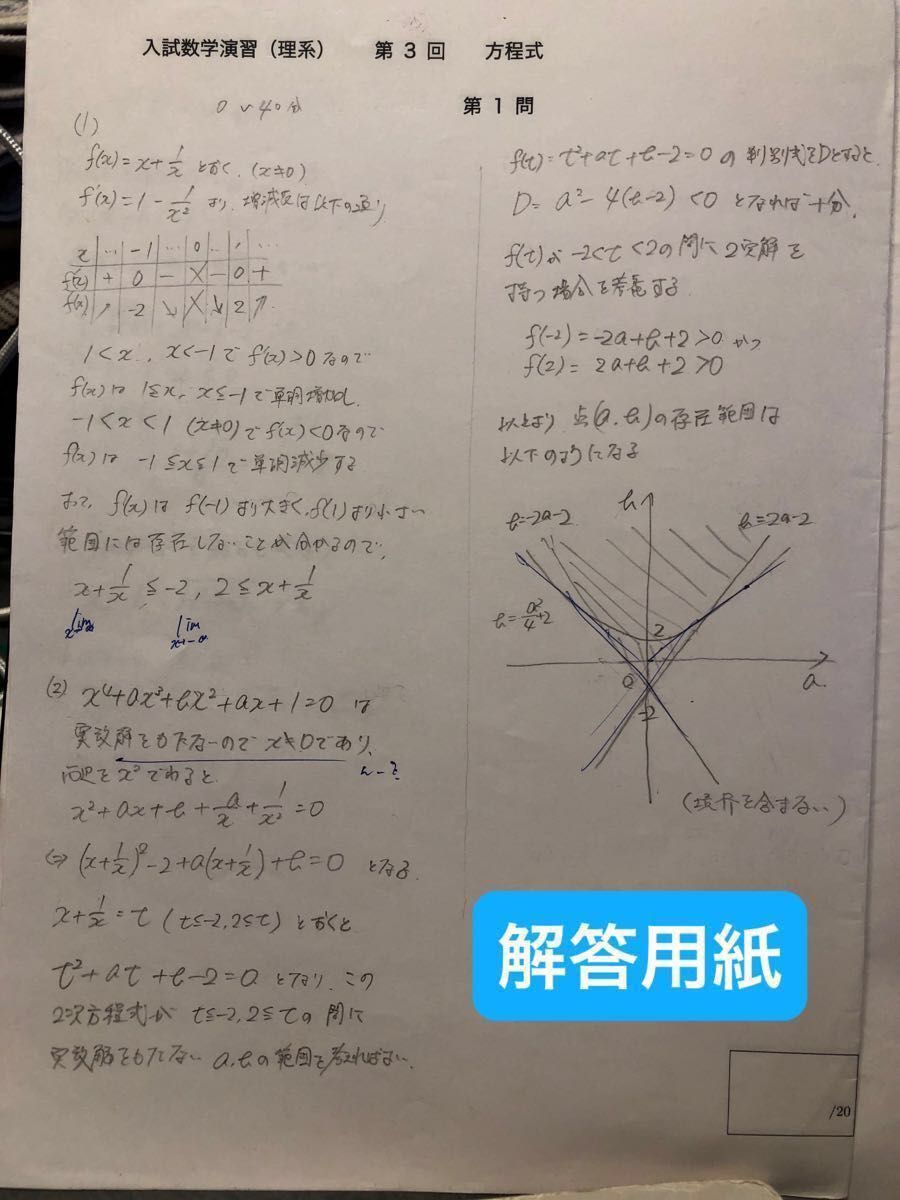 入試数学演習（理系） 第 3 回 方程式
第 1 問
0〜40分
(1)
f(x)=x+1/x とおく. (x≠0)
f'(x)=1-1/x² より, 増減表は以下の通り
x … -1 … 0 … 1 …
f'(x) + 0 - X - 0 +
f(x) ↗ -2 ↘ X ↘ 2 ↗
1<x, x<-1で f'(x)>0なので
f(x)は 1≦x, x≦-1で単調増加し,
-1<x<1 (x≠0)で f'(x)<0なので
f(x)は -1≦x≦1で単調減少する
よって, f(x)は f(-1)より大きく, f(1)より小さい
範囲には存在しないことが分かるので,
x+1/x≦-2, 2≦x+1/x
lim lim
(2) x⁴+ax³+bx²+ax+1=0 は
実数解をもたないので x≠0であり,
両辺を x²でわると,
x²+ax+b+a/x+1/x²=0
⇔ (x+1/x)²-2+a(x+1/x)+b=0 となる
x+1/x=t (t≦-2, 2≦t) とおくと
t²+at+b-2=0 となり, この
2次方程式が t≦-2, 2≦tの間に
実数解をもたない a,bの範囲を考えればよい.
f(t)=t²+at+b-2=0の判別式をDとすると,
D=a²-4(b-2)<0 となれば十分.
f(t)が -2<t<2の間に2実解を
持つ場合を考慮する
f(-2)=-2a+b+2>0 かつ
f(2)=2a+b+2>0
以上より 点(a,b)の存在範囲は
以下のようになる
b
b=-2a-2
b=2a-2
b=a²/4+2
2
0
a
-2
(境界を含まない)
解答用紙
/20